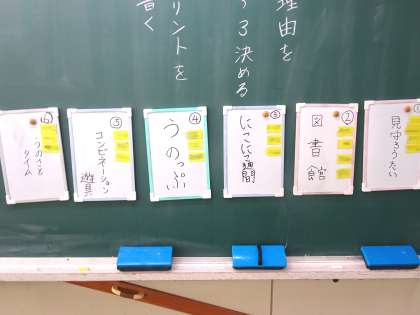 理由を
決める
リントを
書く
見守りうたい
②
図書館
③
にこにこ週間
④
うのっぷぃ
⑤
コンビネーション
遊具
うのさと
タイム